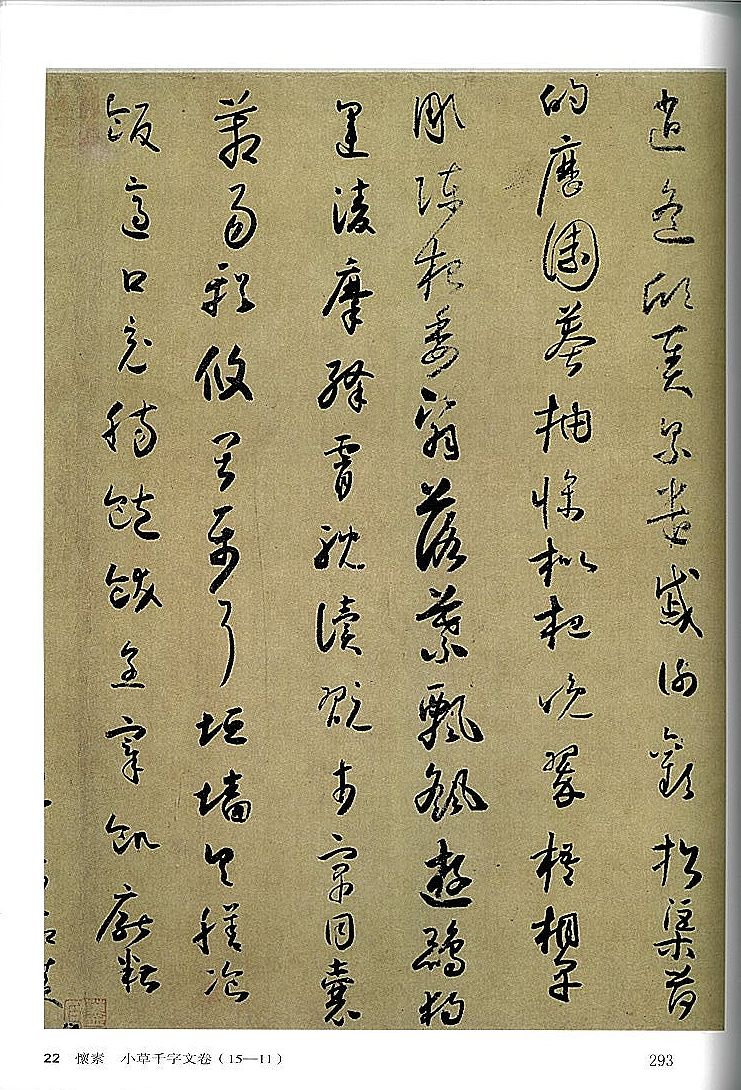 逍遙欣奏累遣慼謝歡招渠荷
的歷園莽抽條枇杷晚翠梧桐早
彫陳根委翳落葉飄颻遊鵾獨
運凌摩絳霄耽讀翫市寓目囊
箱易輶攸畏屬耳垣墻具膳飡
飯適口充腸飽飫烹宰飢厭糟
22 懷素 小草千字文卷(15—11)
293